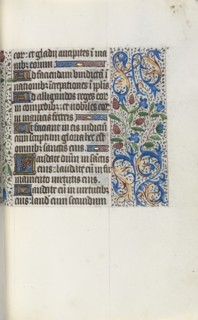 cor: et gladij ancipites in ma
nibz eorum
Ad faciendam vindictam in
nationibz increpationes in pplis
Ad alligandos reges eor
in compedibz: et nobiles eor
in manicis ferreis
Ut faciant in eis iudiciu
conscriptum gloria hec est
omnibz sanctis eius
Laudate dnm in sanctis
eius: laudate eu in fir
mamento virtutis eius
Laudate eu in virtutibz
eius: laud eum secundum